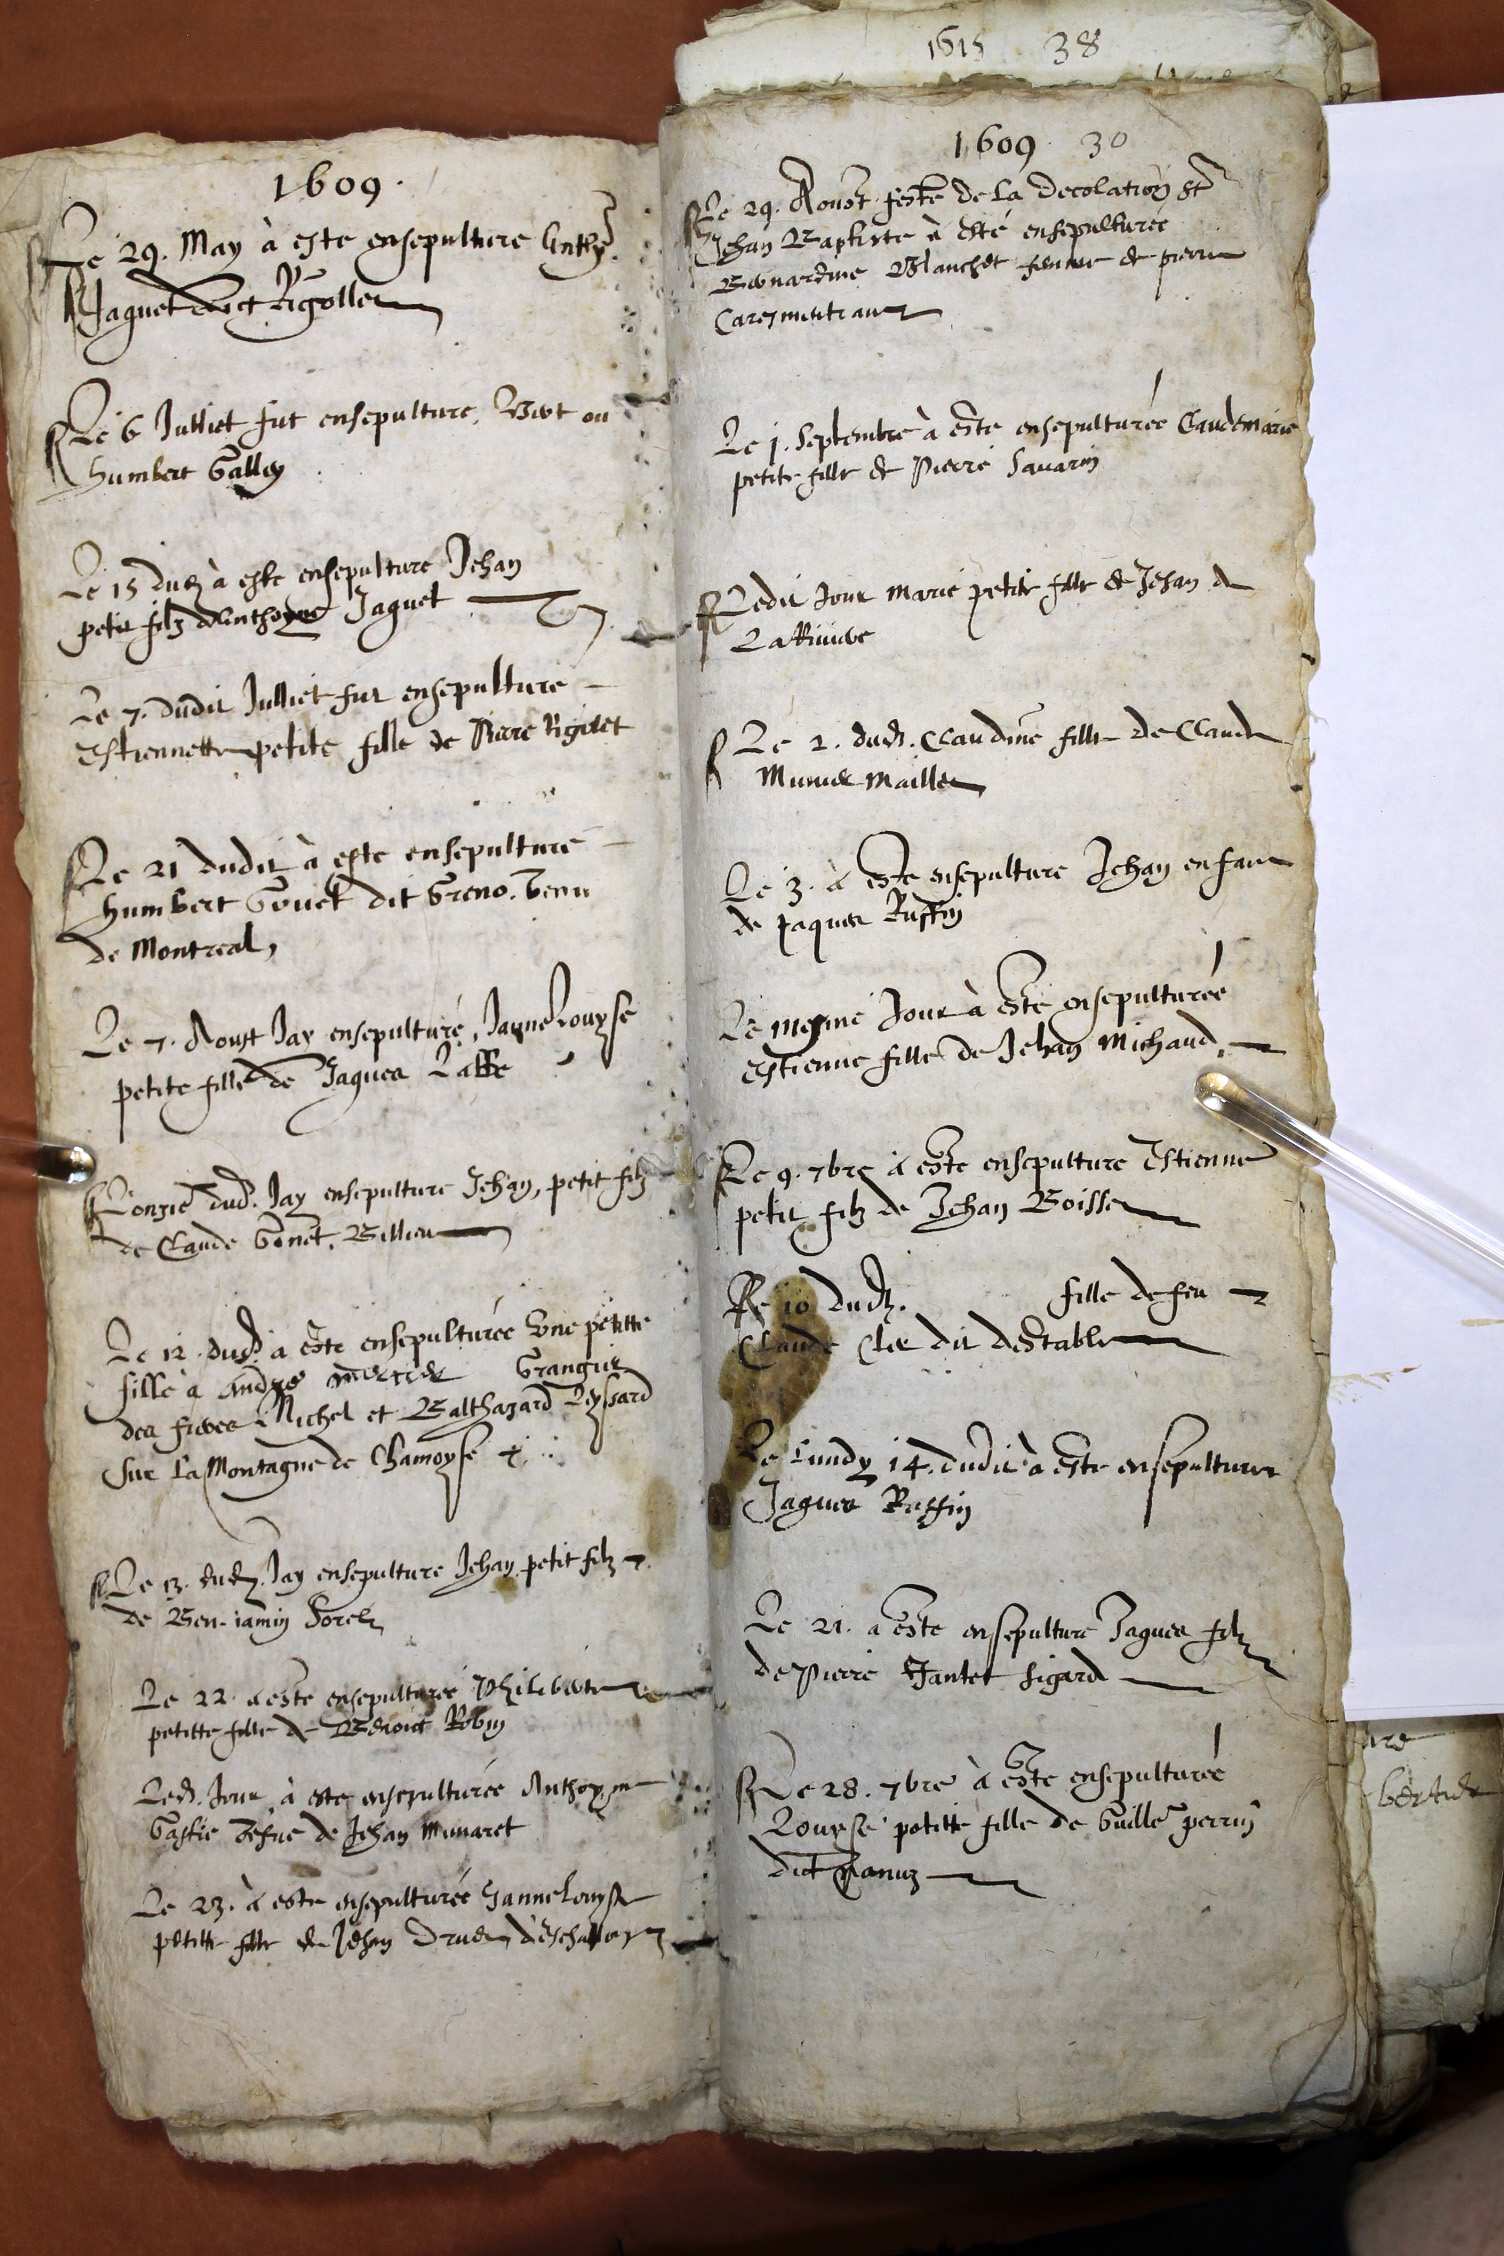 1615 38
1609.
Le 29. May à este ensepulture
Jaquet dict Rigollet
Le 6 Julliet fut ensepulture, ou
humbert Galley
Le 15 dud à este ensepulture Jehan
petit filz d'Anthoyne Jaquet
Le 7. dudit Julliet fut ensepulture
Estiennette petite fille de Pierre Rigolet
Le 21 dudit à este ensepulture
humbert Gouet dit Greno. Venu
de Montreal,
Le 7. Aoust Jay ensepulturé, Janne Louyse
petite fille de Jaques Laffe
L'onzie dud. Jay ensepulture Jehan, petit filz
de Claude Gonet, Billieu
Le 12. dud. a este ensepulturée Une petitte
fille a André mercier Grangier
des freres Michel et Balthazard Leyssard
sur La Montagne de Chamoyse
Le 13. dud. Jay ensepulture Jehan petit filz
de Benjamin Sorel
Le 22. a este ensepulturée Philiberte
petitte fille de Benoict Robin
Led. Jour à este ensepulturée Anthoyne
de Jehan Munaret
Le 23. à este ensepulturée Janne Louyse
petitte fille de Jehan
1609. 30
Le 29. Aoust feste de La decolation St
Jehan Baptiste à esté ensepulturee
Bernardine Blanchet femme de pierre
Caresmentrant
Le 1. Septembre à este ensepulturée Caudemarie
petite fille de Pierre Savarin
Ledit Jour Marie petite fille de Jehan de
La Riviere
Le 2. dud. Claudine fille de Claude
Munier Maillet
Le 3. a este ensepulture Jehan enfant
de Jaques Ruffin
Le mesme Jour à este ensepulturée
Estienne fille de Jehan Michaud,
Le 9. 7bre à este ensepulture Estienne
petit filz de Jehan Boisset
Le 10 dud. fille de feu
Claude Clet dit destables
Le Lundy 14. dudit à este ensepulturee
Jaques Ruffin
Le 21. a este ensepulture Jaques filz
de Pierre Jantet Sigard
Le 28. 7bre à este ensepulturée
Louyse petitte fille de Guille perrin
dict